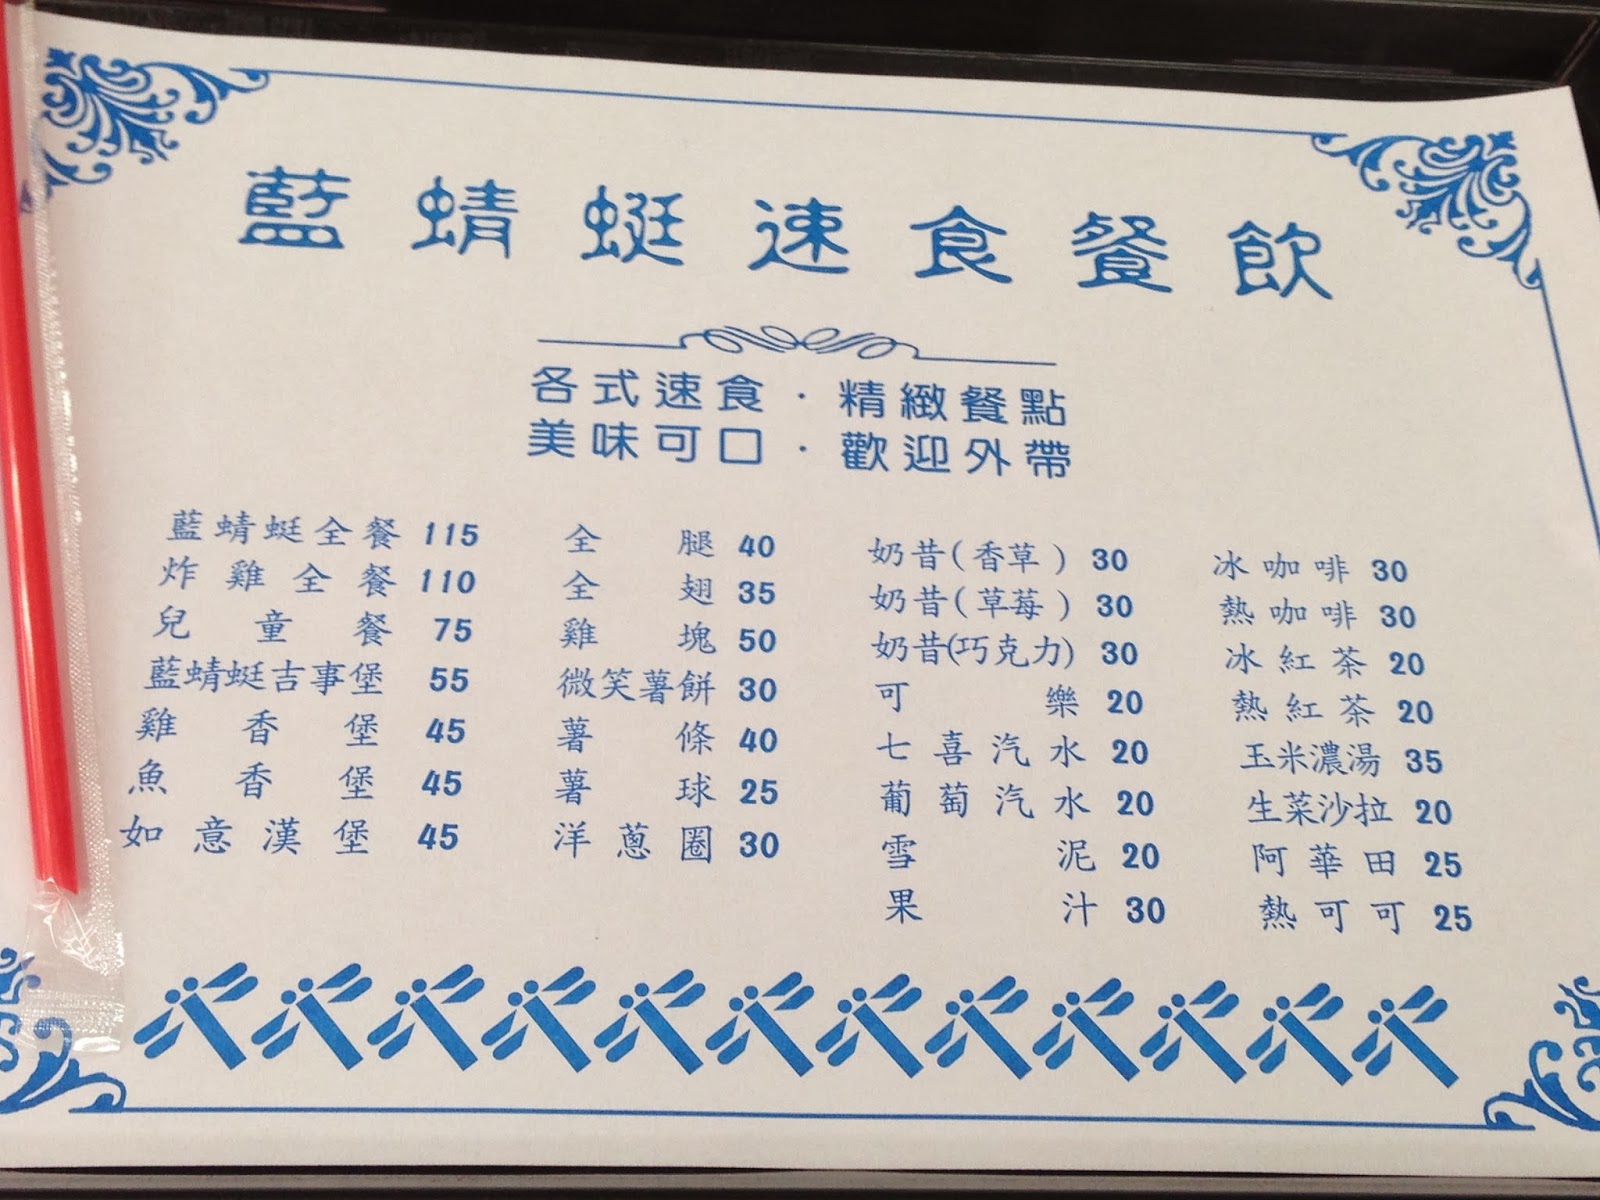 藍蜻蜓速食餐飲
各式速食·精緻餐點
美味可口·歡迎外帶
藍蜻蜓全餐 115
炸雞全餐 110
兒童餐 75
藍蜻蜓吉事堡 55
雞香堡 45
魚香堡 45
如意漢堡 45
全腿 40
全翅 35
雞塊 50
微笑薯餅 30
薯條 40
薯球 25
洋蔥圈 30
奶昔(香草) 30
奶昔(草莓) 30
奶昔(巧克力) 30
可樂 20
七喜汽水 20
葡萄汽水 20
雪泥 20
果汁 30
冰咖啡 30
熱咖啡 30
冰紅茶 20
熱紅茶 20
玉米濃湯 35
生菜沙拉 20
阿華田 25
熱可可 25